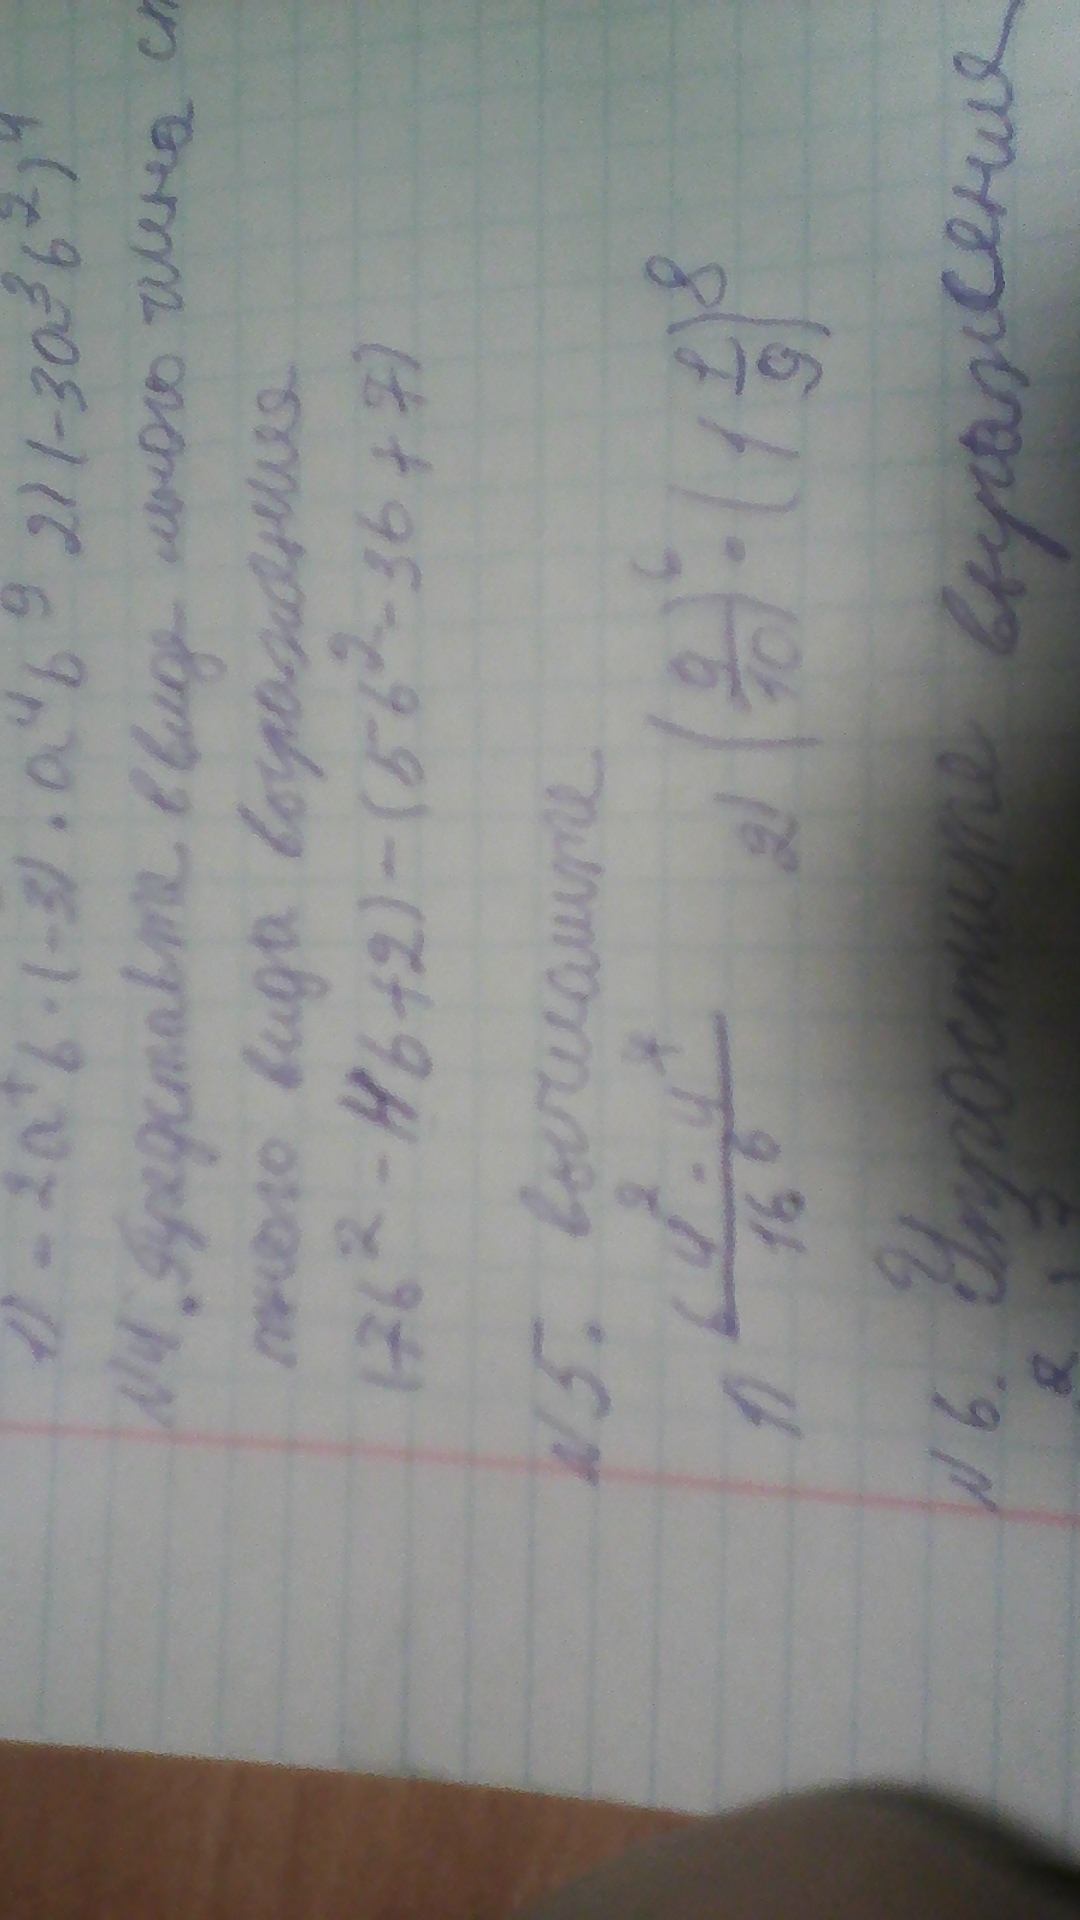 1) - 2a⁷b · (-3) · a⁴b⁹ 2) (-3a³b²)⁴
№4. Представте в виде много члена ст
тного вида выражения
(7b² - 4b + 2) - (5b² - 3b + 7)
№5. вычислите
1) 4² · 4⁷ / 16⁶ 2) (9/10)⁶ · (1 1/9)⁸
№6. Упростите выражение